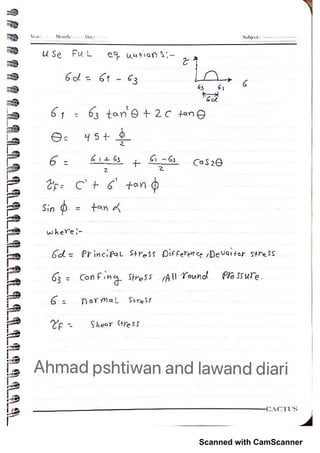 Year: Month: Date: Subject:
use Ful equations:-
τ
6d = 61 - 63
6
63 61
6d
61 = 63 tan²θ + 2c tanθ
θ = 45 + ϕ/2
6 = (61 + 63)/2 + (61 - 63)/2 Cos2θ
τF = c' + 6' tan ϕ
Sin ϕ = tan α
where:-
6d = PrinciPaL Stress Difference /Devaitor stress
63 = Confining Stress /All round Pressure.
6 = normaL Stress
τF = Shear Stress
Ahmad pshtiwan and lawand diari
CACTUS
Scanned with CamScanner